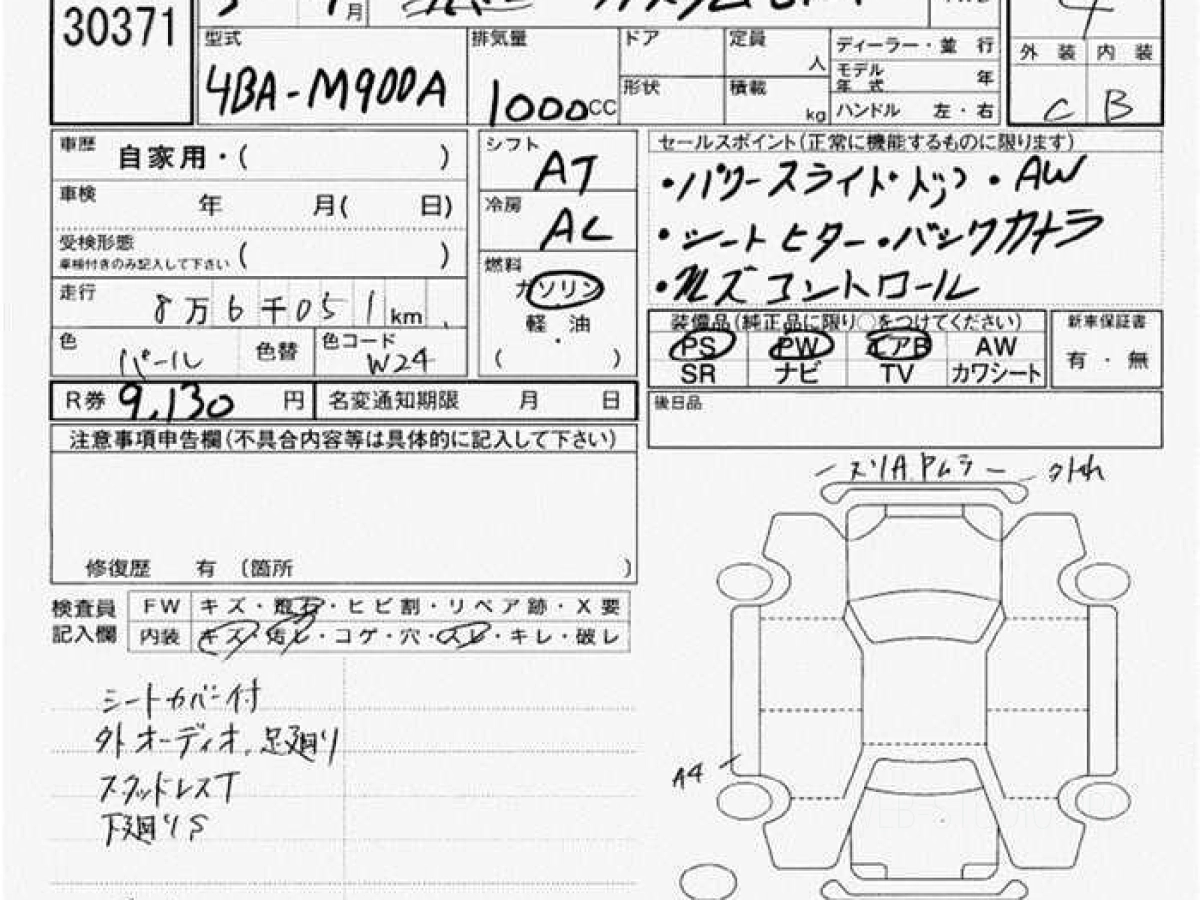 30371
月
型式 排気量 ドア 定員 人 ディーラー・並 行
4BA-M900A 1000cc 形状 積載 kg モデル年式 年
ハンドル 左・右
外 装 内 装
C B
車歴 自家用・( )
シフト AT
セールスポイント(正常に機能するものに限ります)
・パワースライドドア・AW
車検 年 月( 日)
冷房 AC
・シートヒーター・バックカメラ
受検形態 ( )
車検付きのみ記入して下さい
燃料 ガソリン
軽 油
( )
コントロール
走行 8万6千051km
装備品(純正品に限り○をつけてください) 新車保証書
色 パール 色替 色コード W24
PS PW エアB AW 有・無
SR ナビ TV カワシート
R券 9,130 円 名変通知期限 月 日
後日品
注意事項申告欄(不具合内容等は具体的に記入して下さい)
修復歴 有 〔箇所 〕
検査員記入欄
FW キズ・飛石・ヒビ割・リペア跡・X要
内装 キズ・汚レ・コゲ・穴・スレ・キレ・破レ
シートカバー付
外オーディオ、足廻り
スタッドレスT
下廻りS
A4